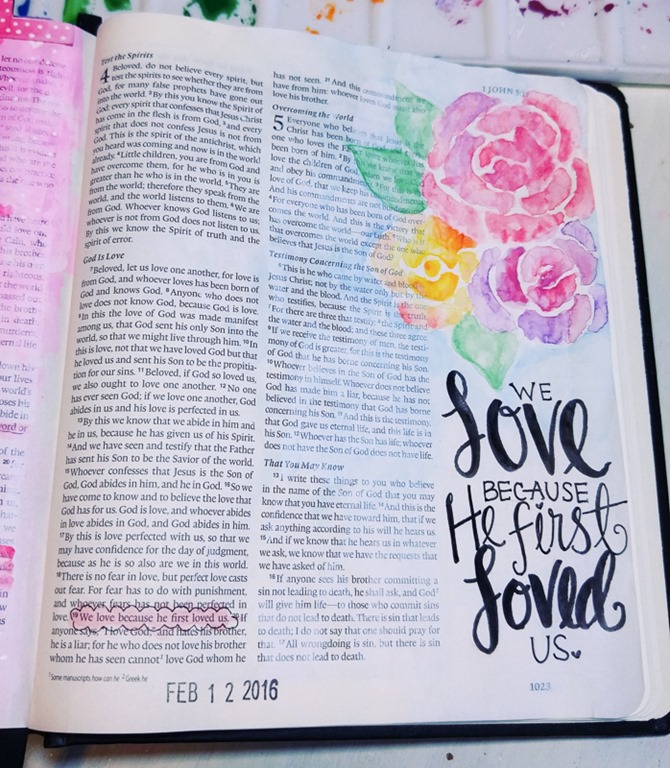 Test the Spirits
4 Beloved, do not believe every spirit, but
test the spirits to see whether they are from
God, for many false prophets have gone out
into the world. ²By this you know the Spirit of
God: every spirit that confesses that Jesus Christ
has come in the flesh is from God, ³and every
spirit that does not confess Jesus is not from
God. This is the spirit of the antichrist, which
you heard was coming and now is in the world
already. ⁴Little children, you are from God and
have overcome them, for he who is in you is
greater than he who is in the world. ⁵They are
from the world; therefore they speak from the
world, and the world listens to them. ⁶We are
from God. Whoever knows God listens to us;
whoever is not from God does not listen to us.
By this we know the Spirit of truth and the
spirit of error.
God Is Love
⁷Beloved, let us love one another, for love is
from God, and whoever loves has been born of
God and knows God. ⁸Anyone who does not
love does not know God, because God is love.
⁹In this the love of God was made manifest
among us, that God sent his only Son into the
world, so that we might live through him. ¹⁰In
this is love, not that we have loved God but that
he loved us and sent his Son to be the propitia-
tion for our sins. ¹¹Beloved, if God so loved us,
we also ought to love one another. ¹²No one
has ever seen God; if we love one another, God
abides in us and his love is perfected in us.
¹³By this we know that we abide in him and
he in us, because he has given us of his Spirit.
¹⁴And we have seen and testify that the Father
has sent his Son to be the Savior of the world.
¹⁵Whoever confesses that Jesus is the Son of
God, God abides in him, and he in God. ¹⁶So we
have come to know and to believe the love that
God has for us. God is love, and whoever abides
in love abides in God, and God abides in him.
¹⁷By this is love perfected with us, so that we
may have confidence for the day of judgment,
because as he is so also are we in this world.
¹⁸There is no fear in love, but perfect love casts
out fear. For fear has to do with punishment,
and whoever fears has not been perfected in
love. ¹⁹We love because he first loved us. ²⁰If
anyone says, "I love God," and hates his brother,
he is a liar; for he who does not love his brother
whom he has seen cannot¹ love God whom he
¹Some manuscripts how can he ²Greek he
FEB 12 2016
has not seen. ²¹And this commandment we
have from him: whoever loves God must also
love his brother.
Overcoming the World
5 Everyone who believes that Jesus is the
Christ has been born of
one who loves the
been born of him. ²By
love the children of God,
and obey his commandments.
love of God, that we keep his commandments.
And his commandments are not burdensome.
⁴For everyone who has been born of God over-
comes the world. And this is the victory that
has overcome the world—our faith. ⁵Who is it
that overcomes the world except the one who
believes that Jesus is the Son of God?
Testimony Concerning the Son of God
⁶This is he who came by water and blood—
Jesus Christ; not by the water only but by the
water and the blood. And the Spirit is the one
who testifies, because the Spirit is the truth.
⁷For there are three that testify: ⁸the Spirit and
the water and the blood; and these three agree.
⁹If we receive the testimony of men, the testi-
mony of God is greater, for this is the testimony
of God that he has borne concerning his Son.
¹⁰Whoever believes in the Son of God has the
testimony in himself. Whoever does not believe
God has made him a liar, because he has not
believed in the testimony that God has borne
concerning his Son. ¹¹And this is the testimony,
that God gave us eternal life, and this life is in
his Son. ¹²Whoever has the Son has life; whoever
does not have the Son of God does not have life.
That You May Know
¹³I write these things to you who believe
in the name of the Son of God that you may
know that you have eternal life. ¹⁴And this is the
confidence that we have toward him, that if we
ask anything according to his will he hears us.
¹⁵And if we know that he hears us in whatever
we ask, we know that we have the requests that
we have asked of him.
¹⁶If anyone sees his brother committing a
sin not leading to death, he shall ask, and God²
will give him life—to those who commit sins
that do not lead to death. There is sin that leads
to death; I do not say that one should pray for
that. ¹⁷All wrongdoing is sin, but there is sin
that does not lead to death.
1 JOHN 5:
WE
Love
BECAUSE
He first
Loved
US
1023